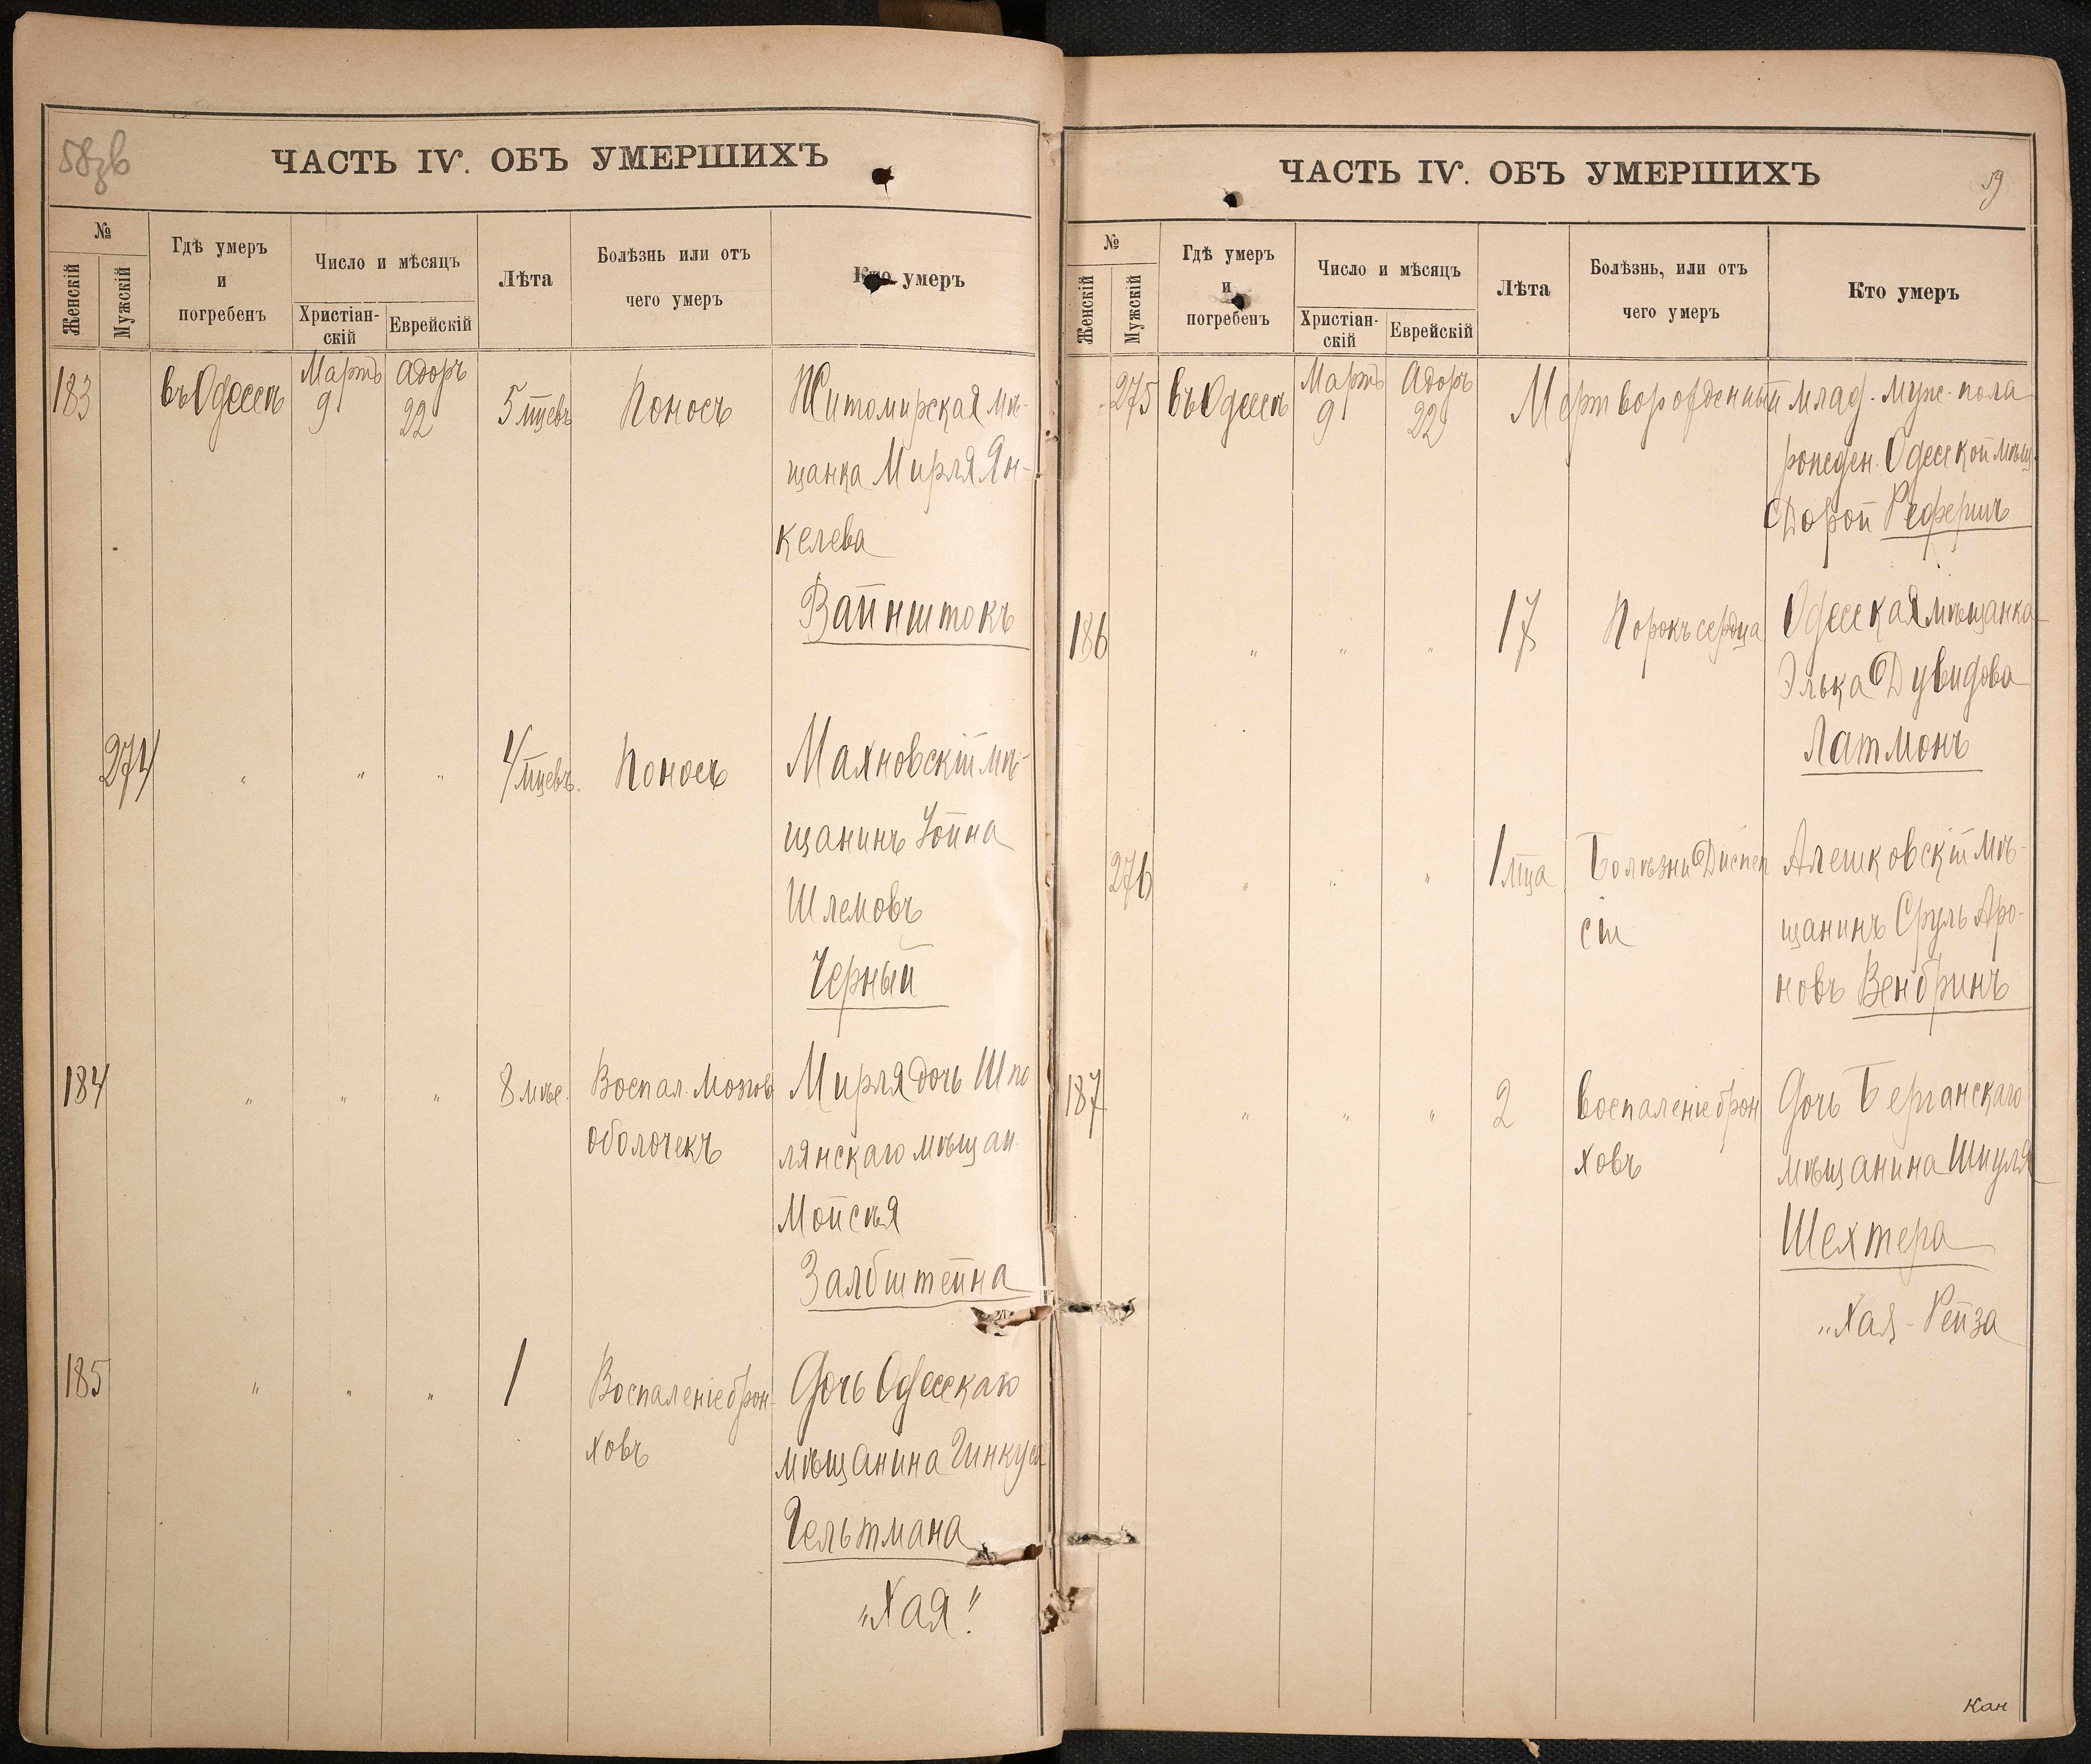 58зв
ЧАСТЬ IV. ОБЪ УМЕРШИХЪ
№
Женскій
Мужскій
Гдѣ умеръ
и
погребенъ
Число и мѣсяцъ
Христіан-
скій
Еврейскій
Лѣта
Болѣзнь или отъ
чего умеръ
Кто умеръ
183 въ Одессѣ Мартъ 9 Адоръ 22 5 мцевъ Поносъ Житомирская мѣ-
щанка Мирля Ян-
келева
Вайнштокъ
274 " " " 4 мцевъ. Поносъ Махновскій мѣ-
щанинъ Хойна
Шлемовъ
Черный
184 " " " 8 мѣс. Воспал. мозгов Мирля дочь Шпо
оболочекъ лянскаго мѣщан
Мойсѣя
Залбштейна
185 " " " 1 Воспаленіе брон- Дочь Одесскаго
ховъ мѣщанина Пинкуса
Гельтмана
"Хая".
ЧАСТЬ IV. ОБЪ УМЕРШИХЪ
59
№
Женскій
Мужскій
Гдѣ умеръ
и
погребенъ
Число и мѣсяцъ
Христіан-
скій
Еврейскій
Лѣта
Болѣзнь, или отъ
чего умеръ
Кто умеръ
275 въ Одессѣ Мартъ 9 Адоръ 22 Мертворожденный млад. муж. пола
рожден. Одесской мѣщ.
Дорой Рефершъ
186 " " " 17 Порокъ сердца Одесская мѣщанка
Элька Дувидова
Латмонъ
276 " " " 1 мца Болѣзни Диспеп Алешковскій мѣ-
сіи щанинъ Сруль Аро-
новъ Венбринъ
187 " " " 2 воспаленіе брон Дочь Берганскаго
ховъ мѣщанина Шмуля
Шехтера
"Хая-Рейза
Кан